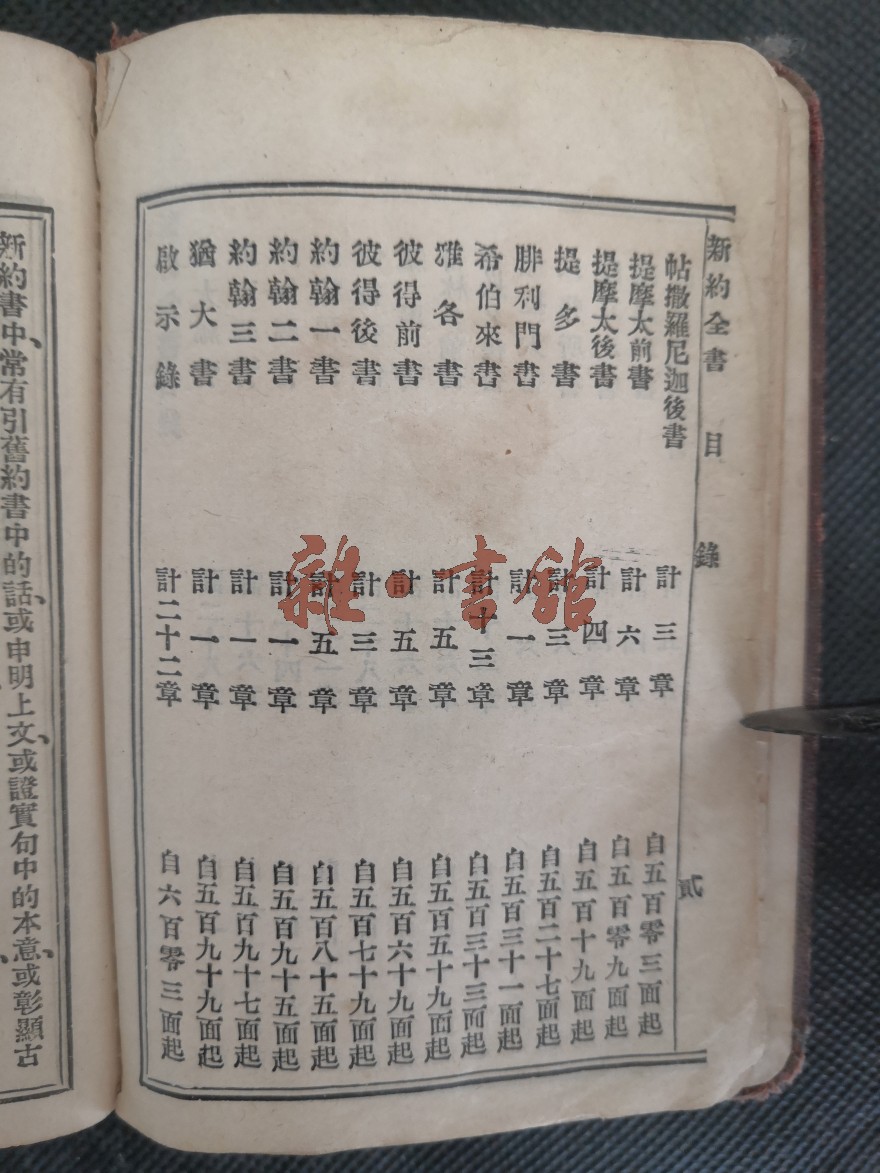 新約全書 目錄 貳
帖撒羅尼迦後書 計三章 自五百零三面起
提摩太前書 計六章 自五百零九面起
提摩太後書 計四章 自五百十九面起
提多書 計三章 自五百二十七面起
腓利門書 計一章 自五百三十一面起
希伯來書 計十三章 自五百三十三面起
雅各書 計五章 自五百五十九面起
彼得前書 計五章 自五百六十九面起
彼得後書 計三章 自五百七十九面起
約翰一書 計五章 自五百八十五面起
約翰二書 計一章 自五百九十五面起
約翰三書 計一章 自五百九十七面起
猶大書 計一章 自五百九十九面起
啟示錄 計二十二章 自六百零三面起
新約書中、常有引舊約書中的話、或申明上文、或證實句中的本意、或彰顯古
雜·書館